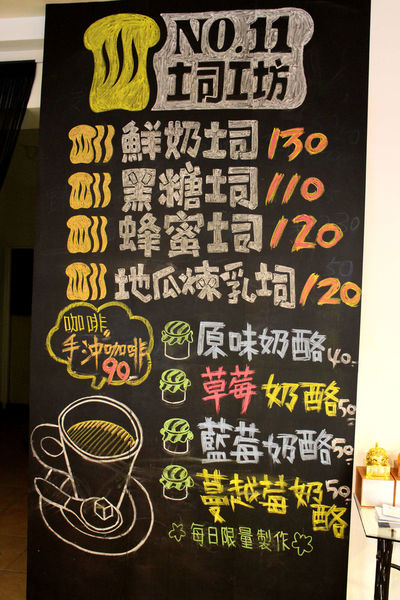 NO.11
土司工坊
鮮奶土司 130
黑糖土司 110
蜂蜜土司 120
地瓜煉乳土司 120
咖啡
手沖咖啡
90
原味奶酪 40
草莓奶酪 50
藍莓奶酪 50
蔓越莓奶酪 50
每日限量製作